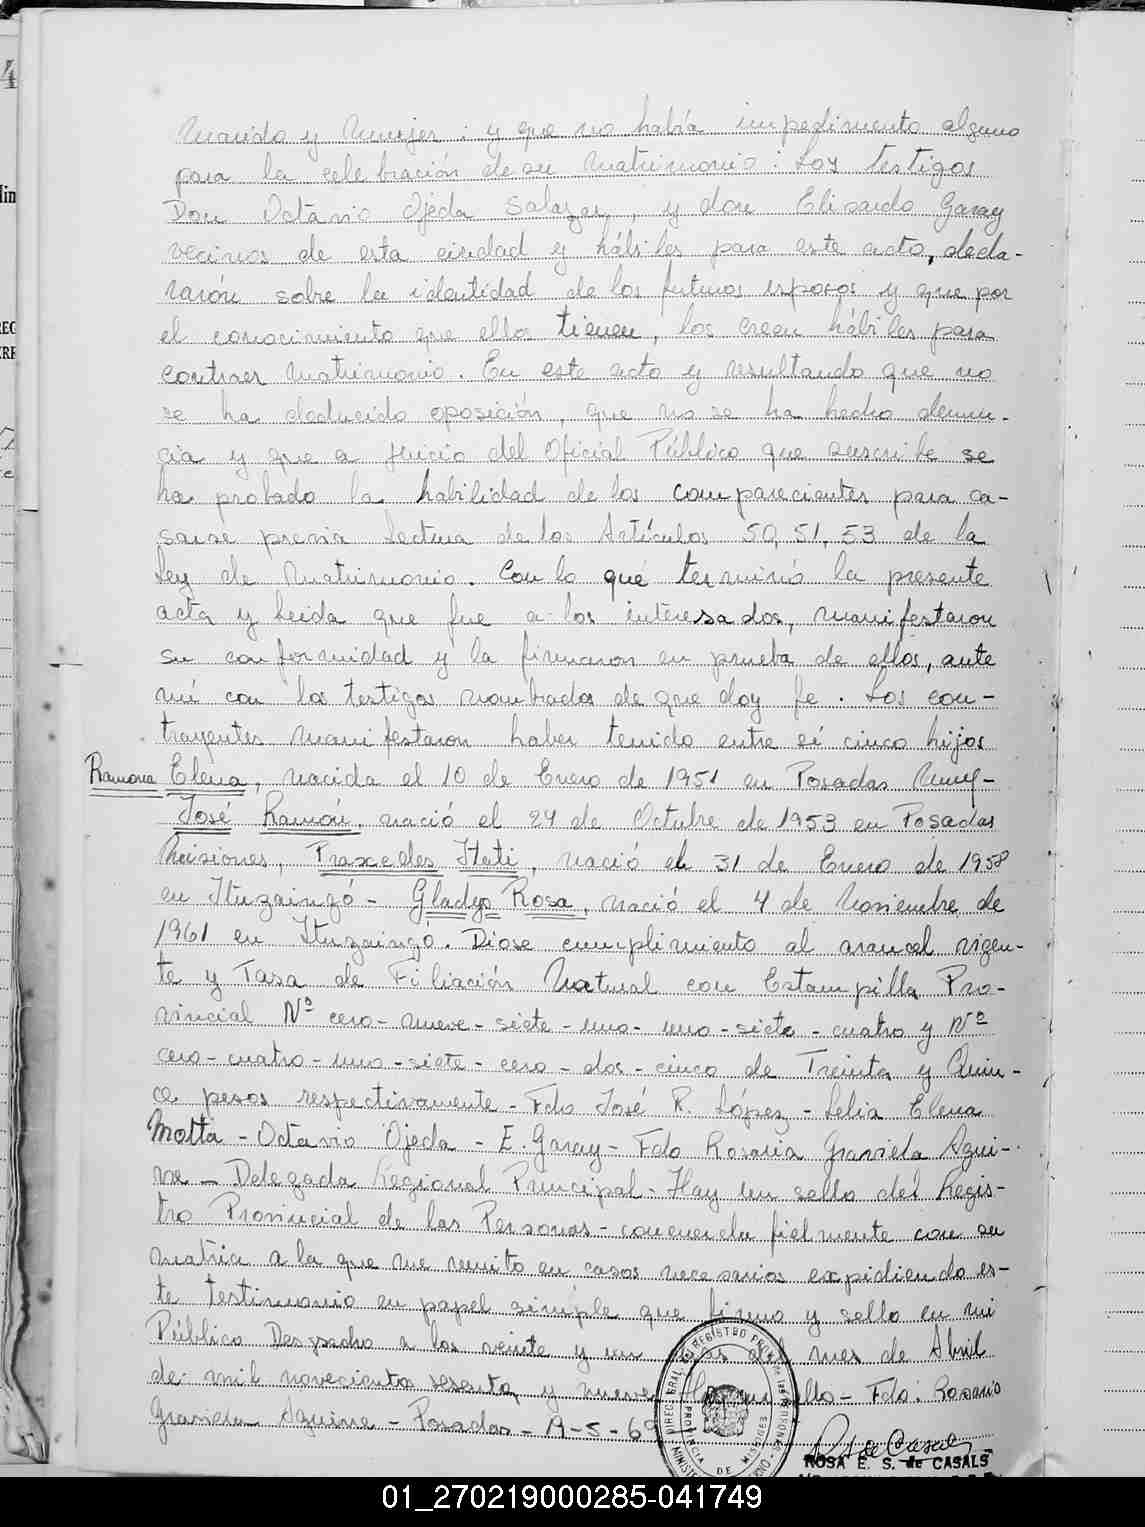 Marido y Mujer: y que no había impedimento alguno
para la celebración de su Matrimonio: Los testigos
Don Octavio Ojeda Salazar, y don Elisardo Garay
vecinos de esta ciudad y hábiles para este acto, decla-
raron sobre la identidad de los futuros esposos y que por
el conocimiento que ellos tienen, los creen hábiles para
contraer Matrimonio. En este acto y resultando que no
se ha deducido oposición, que no se ha hecho denun-
cia y que a juicio del Oficial Público que suscribe se
ha probado la habilidad de los comparecientes para ca-
sarse previa Lectura de los Artículos 50, 51, 53 de la
Ley de Matrimonio. Con lo qué terminó la presente
acta y leida que fue a los interesados, manifestaron
su conformidad y la firmaron en prueba de ellos, ante
mí con los testigos nombrados de que doy fe. Los con-
trayentes manifestaron haber tenido entre sí cinco hijos
Ramona Elena, nacida el 10 de Enero de 1951 en Posadas
José Ramón, nació el 24 de Octubre de 1953 en Posadas
Misiones, Praxedes Itati, nació el 31 de Enero de 1958
en Ituzaingó - Gladys Rosa, nació el 4 de Noviembre de
1961 en Ituzaingó. Diose cumplimiento al arancel vigen-
te y Tasa de Filiación Natural con Estampilla Pro-
vincial Nº cero-nueve-siete-uno-uno-siete-cuatro y Nº
cero-cuatro-uno-siete-cero-dos-cinco de Treinta y Quin-
ce pesos respectivamente - Fdo José R. López - Lelia Elena
Motta - Octavio Ojeda - E. Garay - Fdo Rosaria Graciela Agui-
rre - Delegada Regional Principal - Hay un sello del Regis-
tro Provincial de las Personas - concuerda fielmente con su
matriz a la que me remito en casos necesarios expidiendo es-
te testimonio en papel simple que firmo y sello en mi
Público Despacho a los veinte y un días del mes de Abril
de mil novecientos sesenta y nueve Hay un sello - Fdo: Rosario
Graciela Aguirre - Posadas - 19-5-69
ROSA E. S. de CASALS
01_270219000285-041749